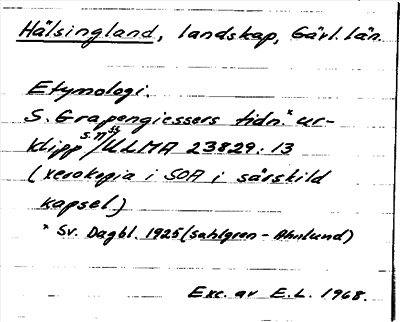 Hälsingland, landskap, Gävl. län.
Etymologi.
S. Grapengiessers tidn.* ur-
klipp / ULMA 23829:13
(xerokopia i SOA i särskild
kapsel)
* Sv. Dagbl. 1925 (Sahlgren - Ahnlund)
Exc. av E.L. 1968.